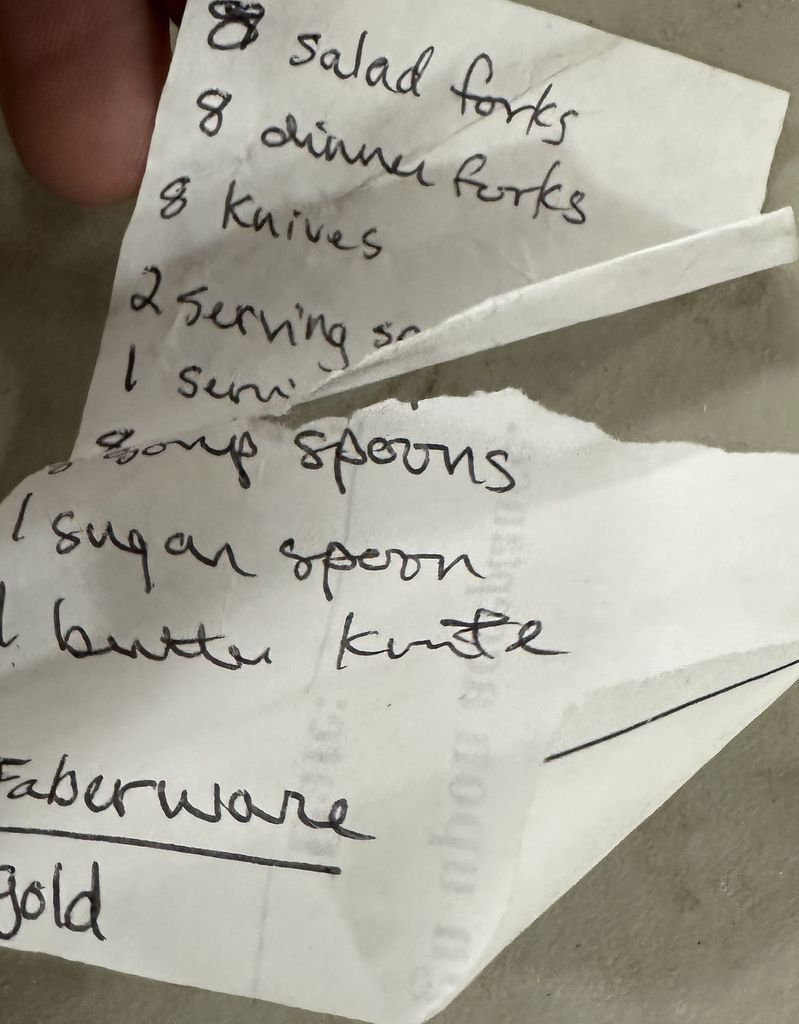 8 salad forks
8 dinner forks
8 knives
2 serving
1
8 soup spoons
1 sugar spoon
1 butter knife
Faberware
gold